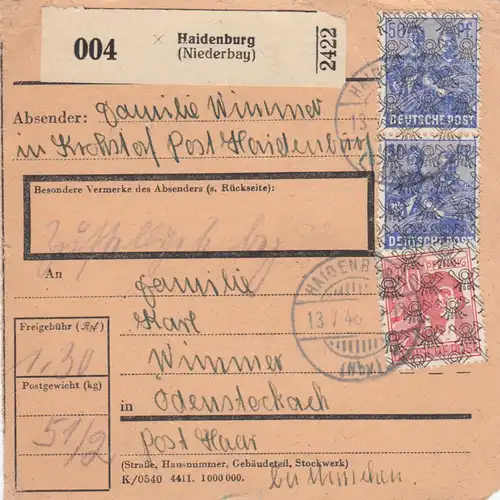 004
Haidenburg
(Niederbay)
2422
50 PF
DEUTSCHE POST
DEUTSCHE POST
PFENNIG
HAIDENB
13.7.48
(Nby.)
Absender: Familie Wimmer
in Kirchdorf Post Haidenburg
Besondere Vermerke des Absenders (s. Rückseite):
An
Familie
Karl
Wimmer
in Odensteckach
Post Haar
(Straße, Hausnummer, Gebäudeteil, Stockwerk)
bei München.
Freigebühr (Rpf)
1.30
Postgewicht (kg)
5 1/2
K/0540 4411. 1000000.